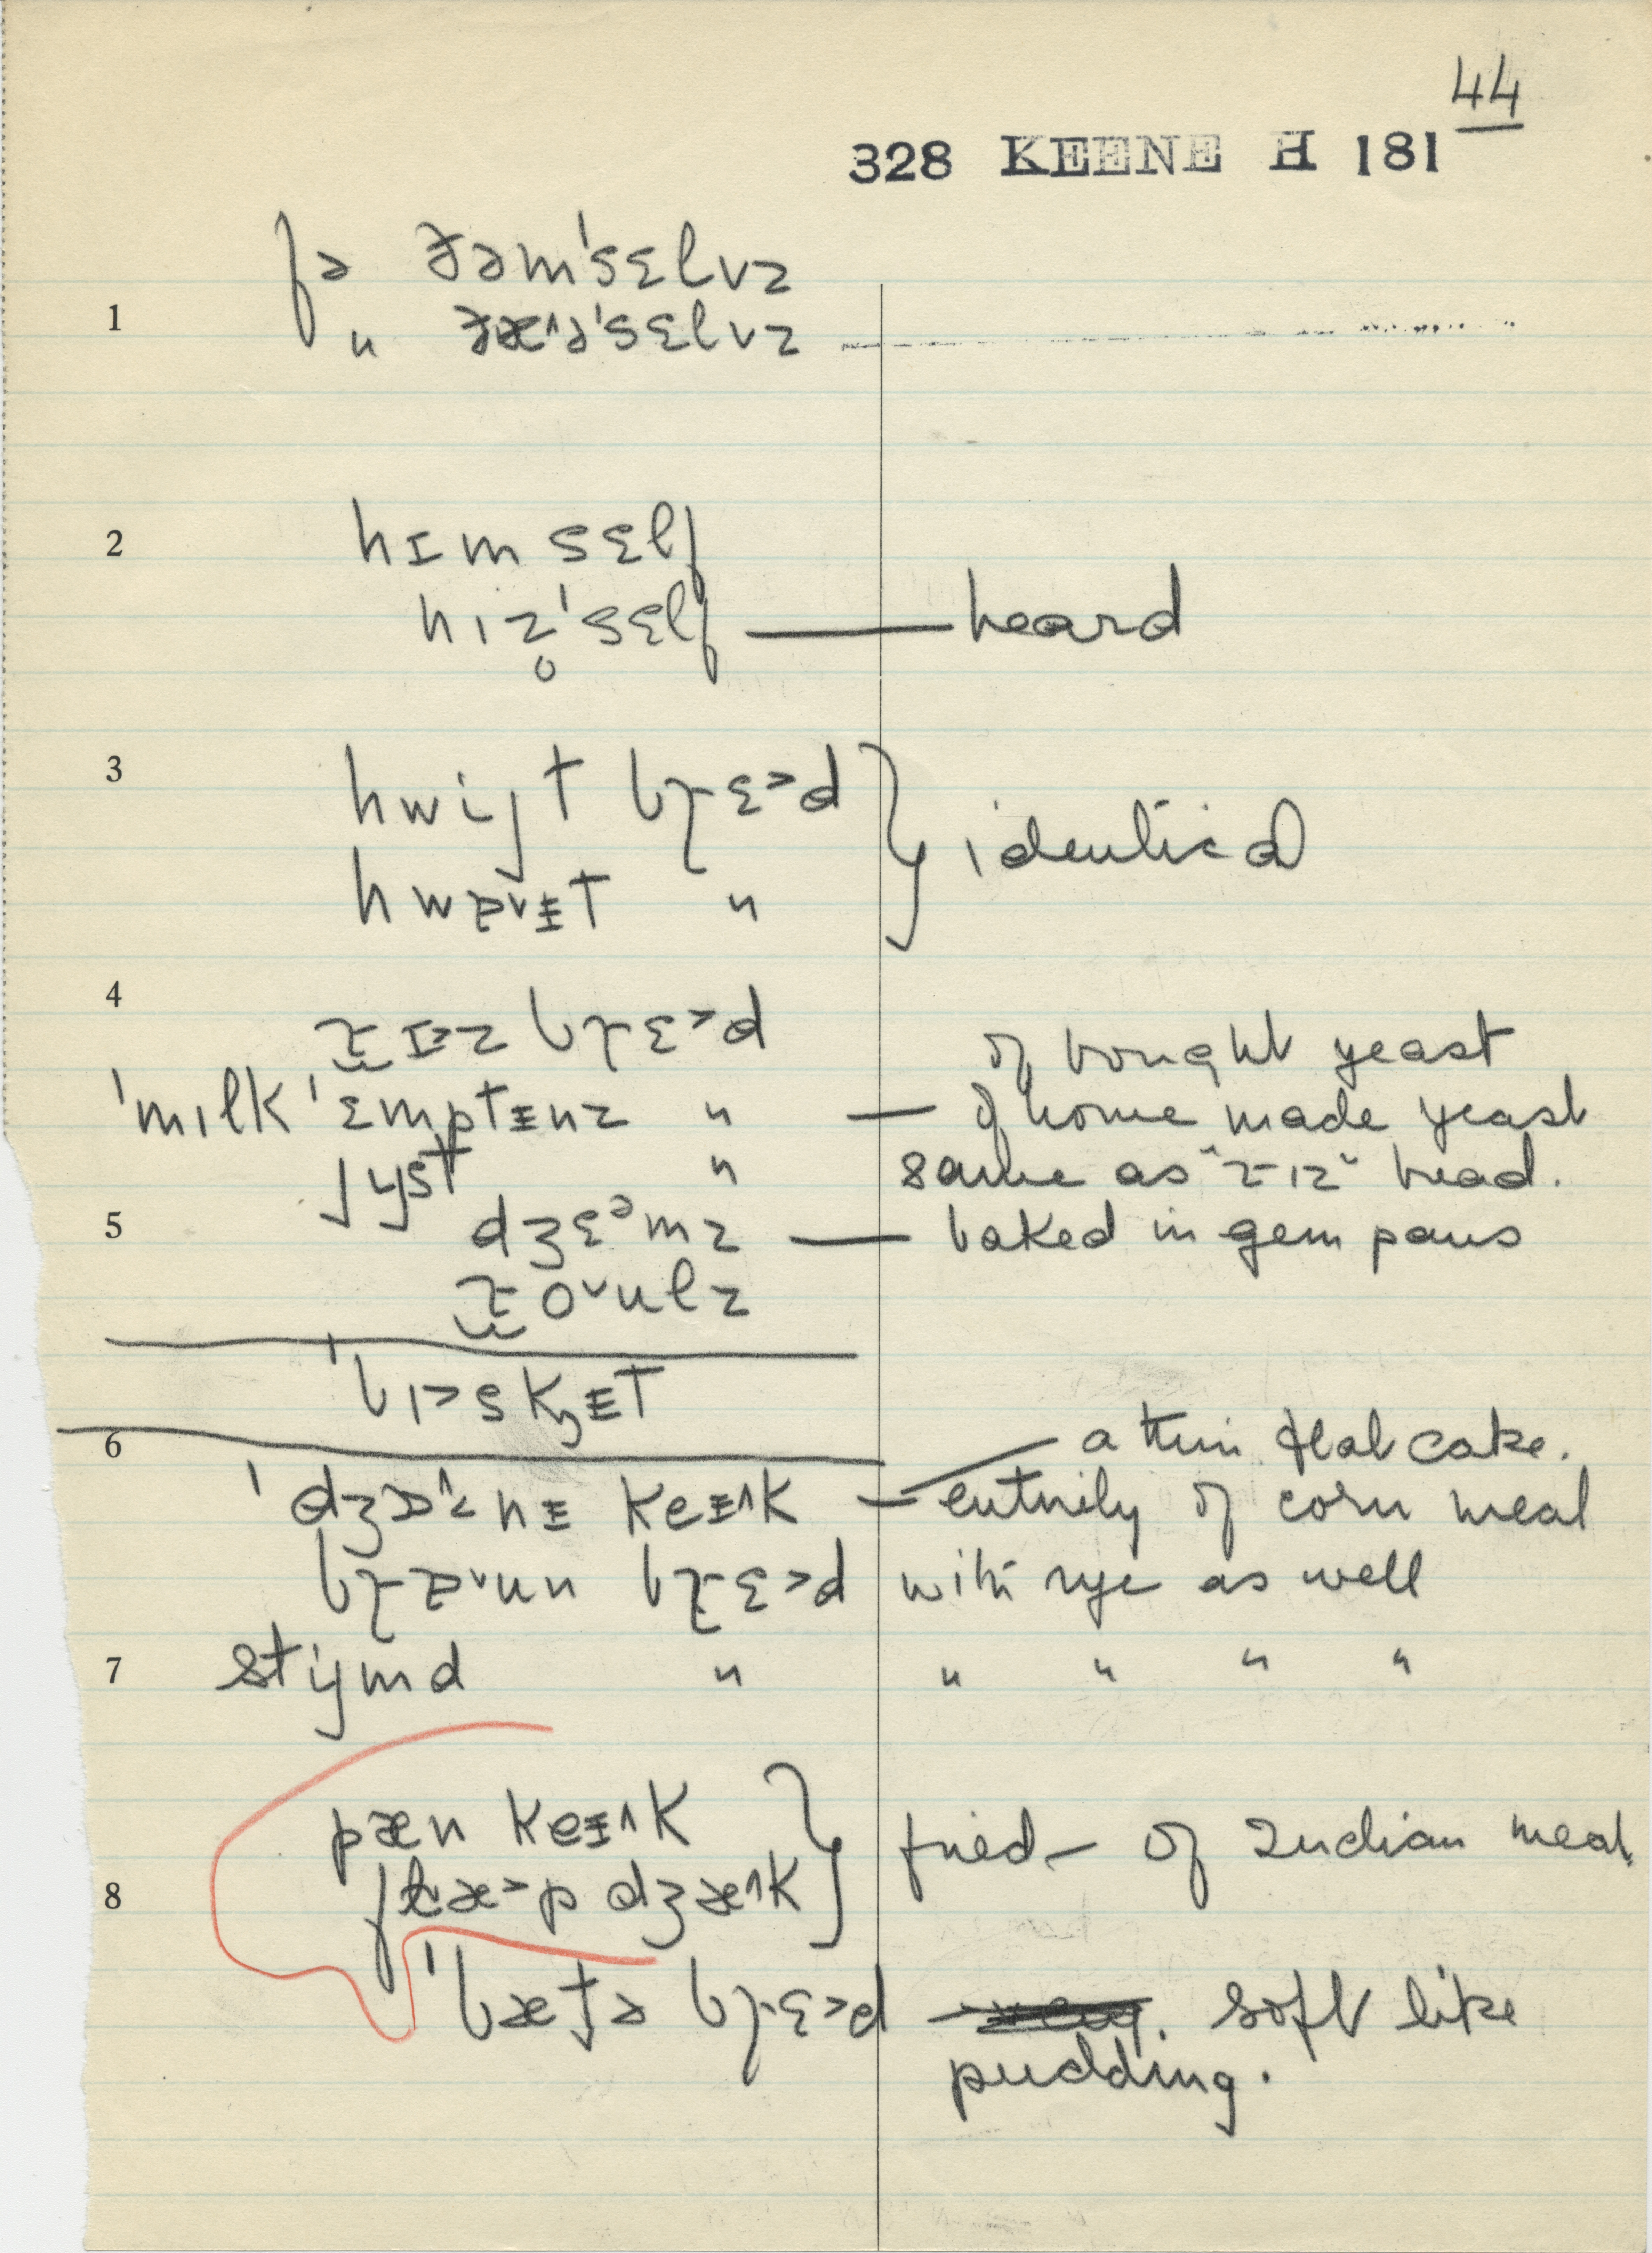 44
328 KEENE H 181
fə ðəm'sɛlvz
1 " ðæ^ə'sɛlvz
2 hɪm sɛlf
hɪz̥'sɛlf — heard
3 hwijt brɛ>d } identical
hwɒvᵻt "
4 rɪ>z brɛ>d of bought yeast
'mɪlk 'ɛmptᵻnz " — of home made yeast
jyst " same as "rɪz" bread.
5 dʒɛᵊmz — baked in gem pans
oᵛulz
'bɪ>skᵻt
6 — a thin flat cake.
keᵻ^k — entirely of corn meal
brɛ>d with rye as well
7 stijmd " " " " "
pæn keᵻ^k } fried – of Indian meal
8 flæ>p dʒæ^k
'bætə brɛ>d soft like
pudding.